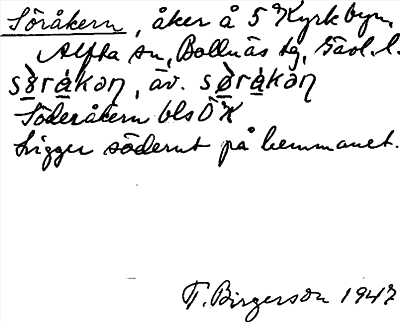 Söråkern, åker å 5 Kyrkbyn,
Alfta sn, Bollnäs tg, Gävl. l.
sörakon, äv. sørakon
Söderåkern bls ÖK
Ligger söderut på hemmanet.
T. Birgerson 1947